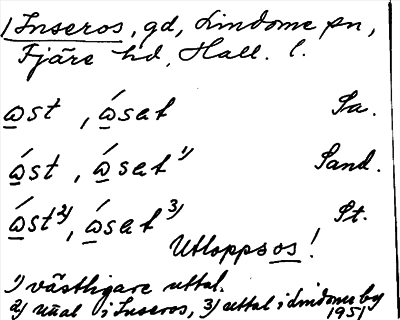 1) Inseros, gd, Lindome sn,
Fjäre hd, Hall. l.
ɷst , ɷ́sat Sa.
ɷ́st , ɷ́sat 1) Sand.
ɷ́st 2), ɷ́sat 3) St.
Utloppsos!
1) västligare uttal.
2) uttal i Inseros, 3) uttal i Lindome by
1951